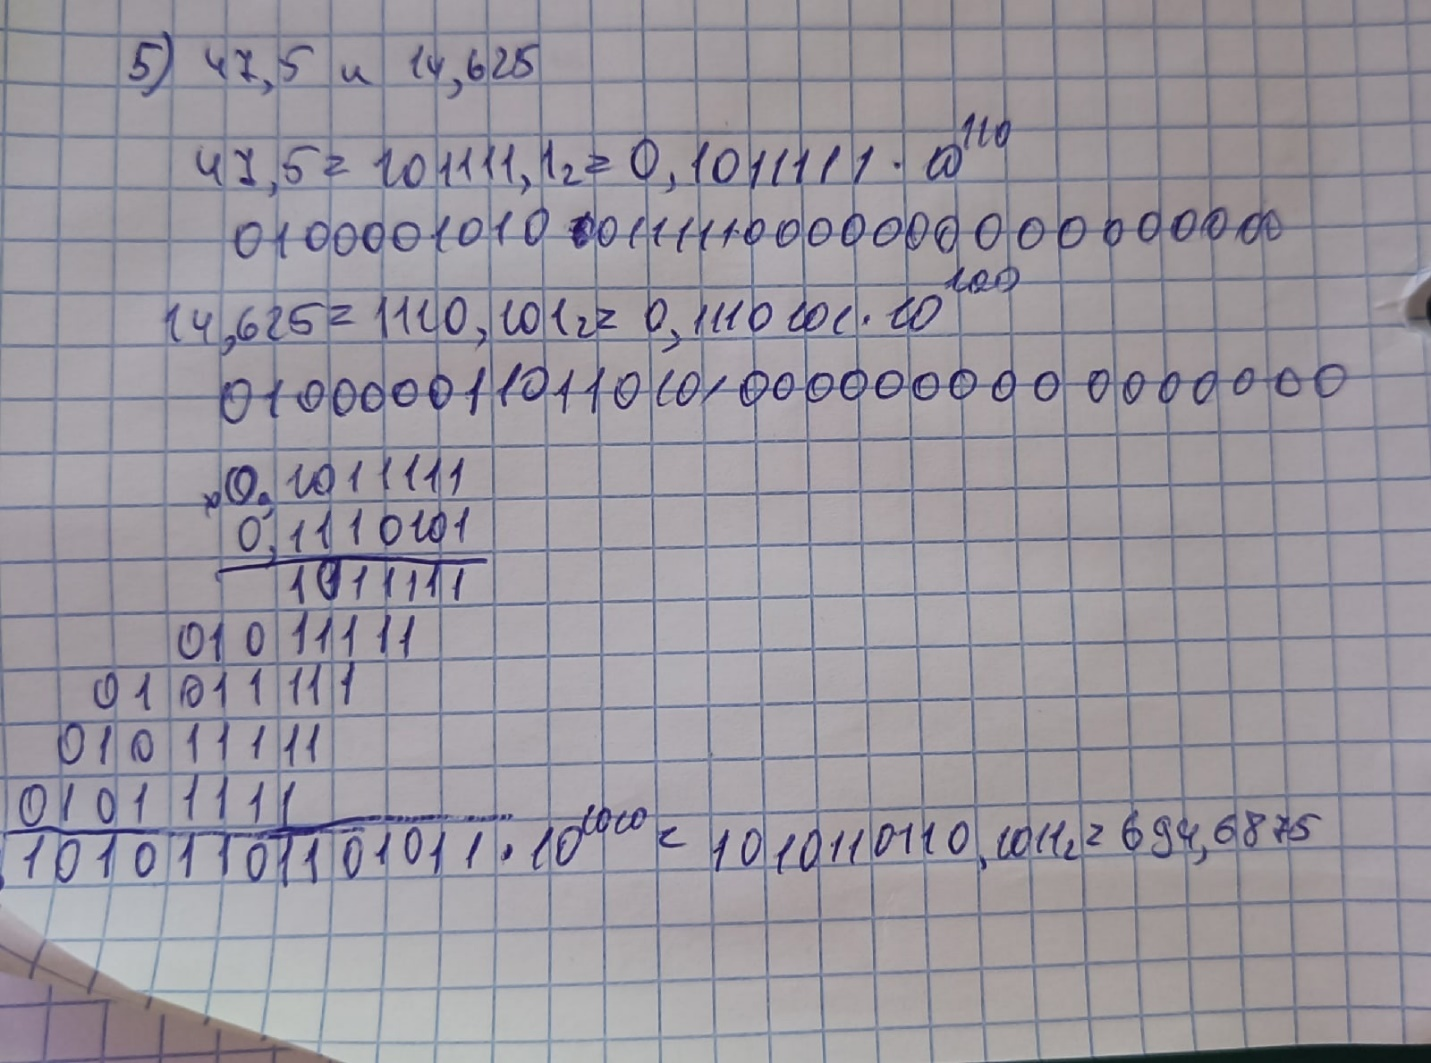 5) 47,5 и 14,625
47,5 = 101111,1₂ = 0,1011111 · 10¹¹⁰
01000010100111110000000000000000
14,625 = 1110,101₂ = 0,1110101 · 10¹⁰⁰
01000001101101010000000000000000
× 0,1011111
0,1110101
1011111
01011111
01011111
01011111
01011111
10101101101011 · 10¹⁰¹⁰ = 1010110110,1011₂ = 694,6875